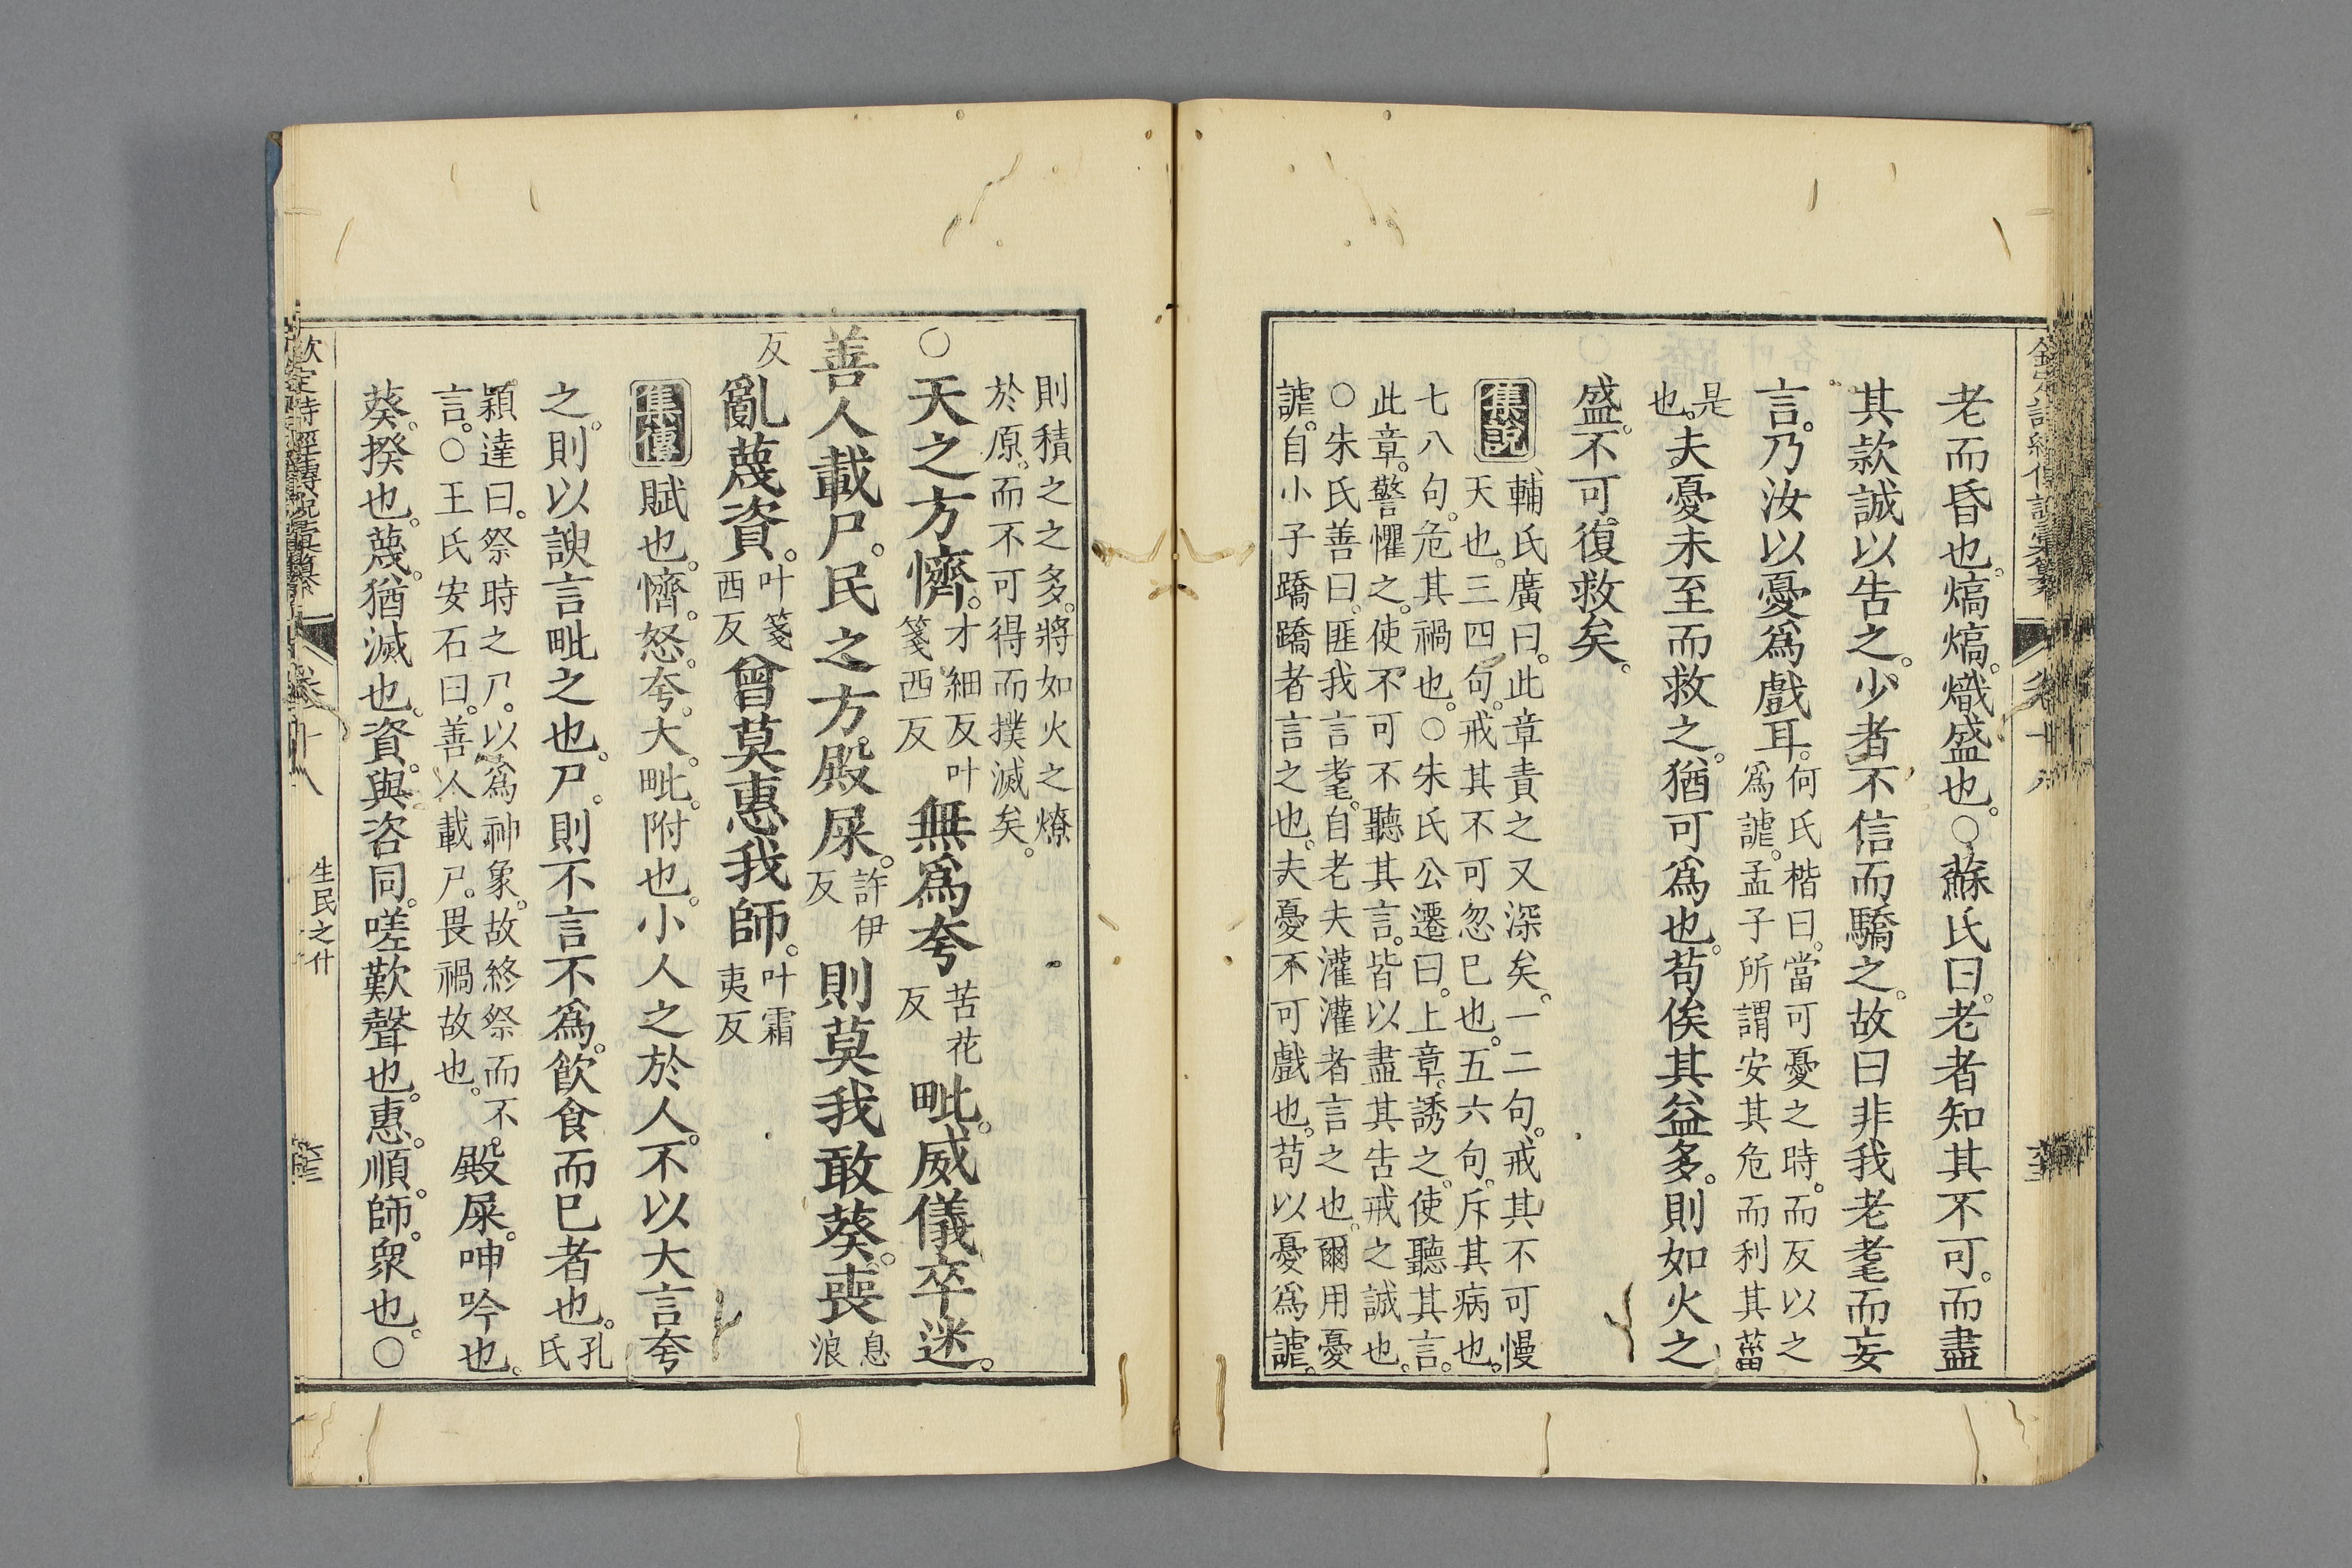 老而昏也。熇熇。熾盛也。○蘇氏曰。老者知其不可。而盡
其款誠以告之。少者不信而驕之。故曰非我老耄而妄
言。乃汝以憂爲戲耳。
何氏楷曰。當可憂之時。而反以之
爲謔。孟子所謂安其危而利其菑
是
也。
夫憂未至而救之。猶可爲也。苟俟其益多。則如火之
盛。不可復救矣。
集說
輔氏廣曰。此章責之又深矣。一二句。戒其不可慢
天也。三四句。戒其不可忽已也。五六句。斥其病也。
七八句。危其禍也。○朱氏公遷曰。上章。誘之。使聽其言。
此章。警懼之。使不可不聽其言。皆以盡其告戒之誠也。
○朱氏善曰。匪我言耄。自老夫灌灌者言之也。爾用憂
謔。自小子蹻蹻者言之也。夫憂不可戲也。苟以憂爲謔。
則積之之多。將如火之燎
於原。而不可得而撲滅矣。
○天之方懠。
才細反叶
箋西反
無爲夸
苦花
反
毗。威儀卒迷。
善人載尸。民之方殿屎。
許伊
反
則莫我敢葵。喪
息
浪
反
亂蔑資。
叶箋
西反
曾莫惠我師。
叶霜
夷反
集傳
賦也。懠。怒。夸。大。毗。附也。小人之於人。不以大言夸
之。則以諛言毗之也。尸。則不言不爲。飲食而已者也。
孔
氏
穎達曰。祭時之尸。以爲神象。故終祭而不
言。○王氏安石曰。善人載尸。畏禍故也。
殿屎。呻吟也。
葵。揆也。蔑。猶滅也。資。與咨同。嗟歎聲也。惠。順。師。衆也。○
欽定詩經傳說彙纂
卷十八
生民之什